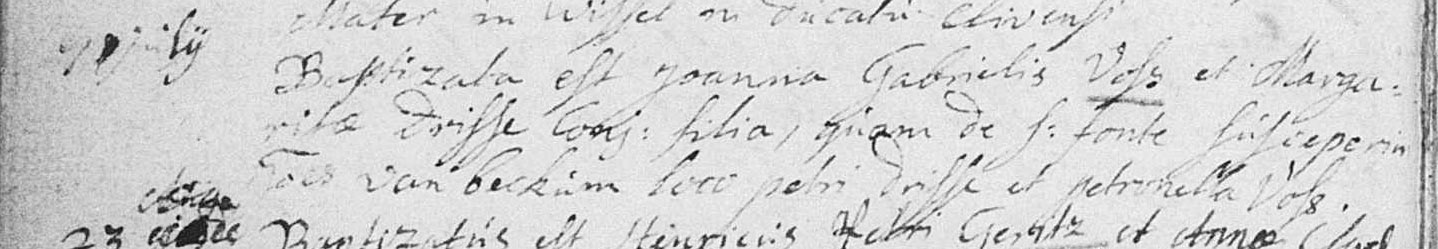 Mater in Wissel in Ducatu Clivensi
july Baptizata est Joanna Gabrielis Voss et Marga-
ritae Drisse Conj: filia, quam de s: fonte susceperun
Joes van beckum loco petri Drisse et petronella Voss.
23 Baptizatus est Henricus Petri Geritz et Annae